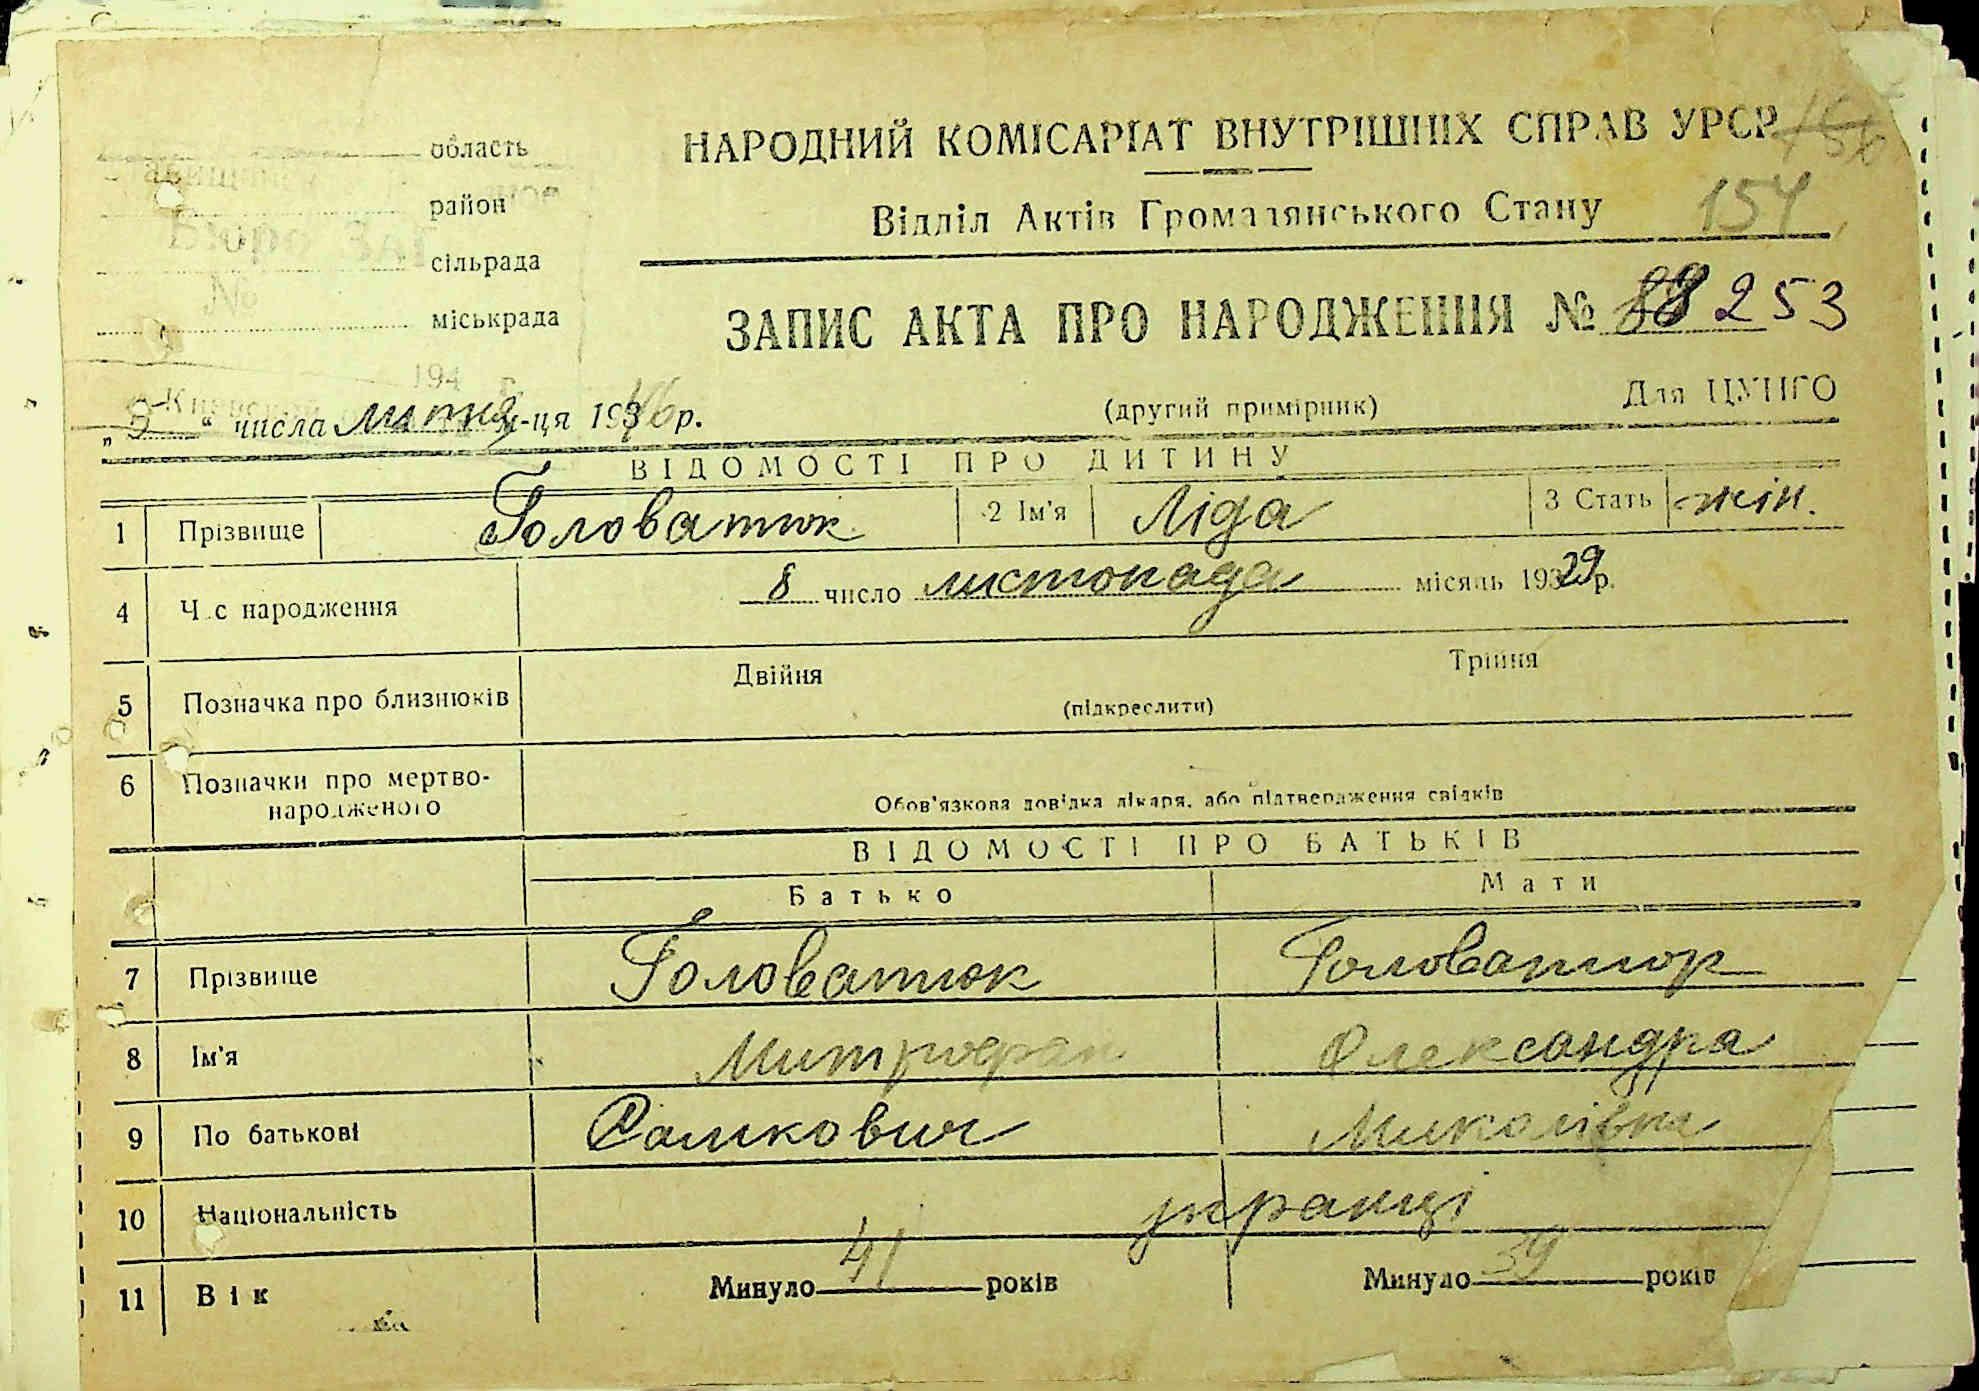 область
район
сільрада
міськрада
НАРОДНИЙ КОМІСАРІАТ ВНУТРІШНІХ СПРАВ УРСР
Відділ Актів Громадянського Стану
154
ЗАПИС АКТА ПРО НАРОДЖЕННЯ № 253
„ 9 “ числа липня м-ця 1946 р.
(другий примірник)
Для ЦУНГО
ВІДОМОСТІ ПРО ДИТИНУ
1 Прізвище Головатюк 2 Ім'я Ліда 3 Стать жін.
4 Час народження 8 число листопада місяць 1939 р.
5 Позначка про близнюків Двійня Трійня
(підкреслити)
6 Позначки про мертво-
народженого Обов'язкова довідка лікаря, або підтвердження свідків
ВІДОМОСТІ ПРО БАТЬКІВ
Батько Мати
7 Прізвище Головатюк Головатюк
8 Ім'я Митрофан Олександра
9 По батькові Самкович Миколівна
10 Національність українці
11 Вік Минуло 41 років Минуло 39 років